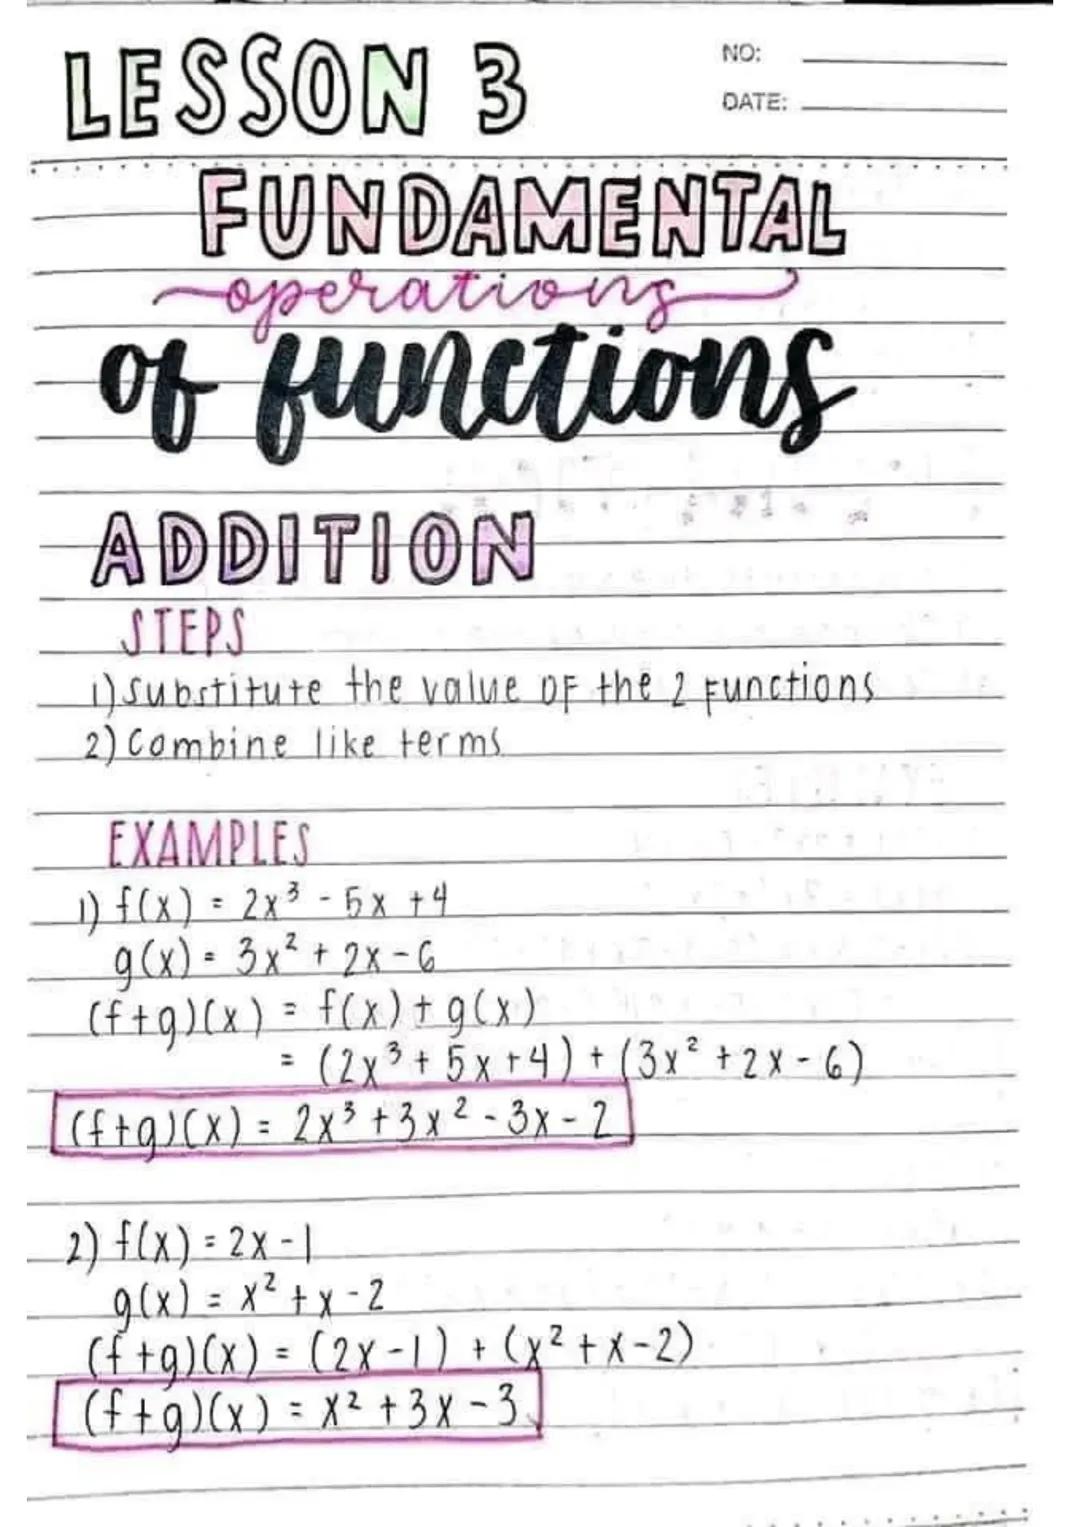 LESSON 3
NO:
DATE:
FUNDAMENTAL
operations
of functions
ADDITION
STEPS
1) Substitute the value of the 2 functions
2) Combine like terms
EXAMPLES
1) f(x) = 2x³ - 5x + 4
g(x) = 3x² + 2x - 6
(f+g)(x) = f(x) + g(x)
= (2x³ + 5x + 4) + (3x² + 2x - 6)
(f+g)(x) = 2x³ + 3x² - 3x - 2
2) f(x) = 2x - 1
g(x) = x² + x - 2
(f+g)(x) = (2x - 1) + (x² + x - 2)
(f+g)(x) = x² + 3x - 3